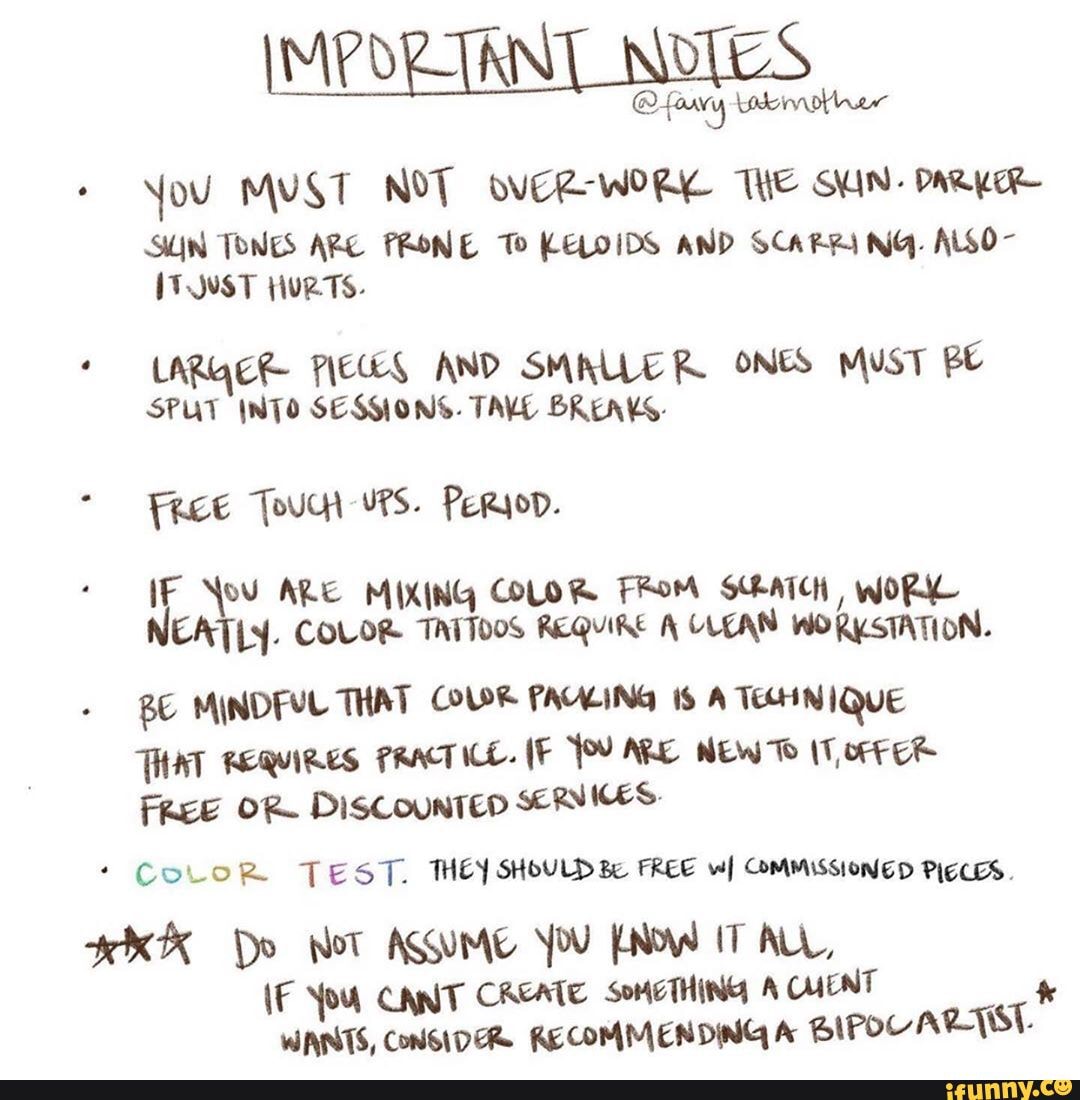 IMPORTANT NOTES
@fairytatmother
• YOU MUST NOT OVER-WORK THE SKIN. DARKER
SKIN TONES ARE PRONE TO KELOIDS AND SCARRING. ALSO-
IT JUST HURTS.
• LARGER PIECES AND SMALLER ONES MUST BE
SPLIT INTO SESSIONS. TAKE BREAKS.
• FREE TOUCH-UPS. PERIOD.
• IF YOU ARE MIXING COLOR FROM SCRATCH, WORK
NEATLY. COLOR TATTOOS REQUIRE A CLEAN WORKSTATION.
• BE MINDFUL THAT COLOR PACKING IS A TECHNIQUE
THAT REQUIRES PRACTICE. IF YOU ARE NEW TO IT, OFFER
FREE OR DISCOUNTED SERVICES.
• COLOR TEST. THEY SHOULD BE FREE W/ COMMISSIONED PIECES.
☆☆☆ DO NOT ASSUME YOU KNOW IT ALL,
IF YOU CANT CREATE SOMETHING A CLIENT
WANTS, CONSIDER RECOMMENDING A BIPOC ARTIST.☆
ifunny.co